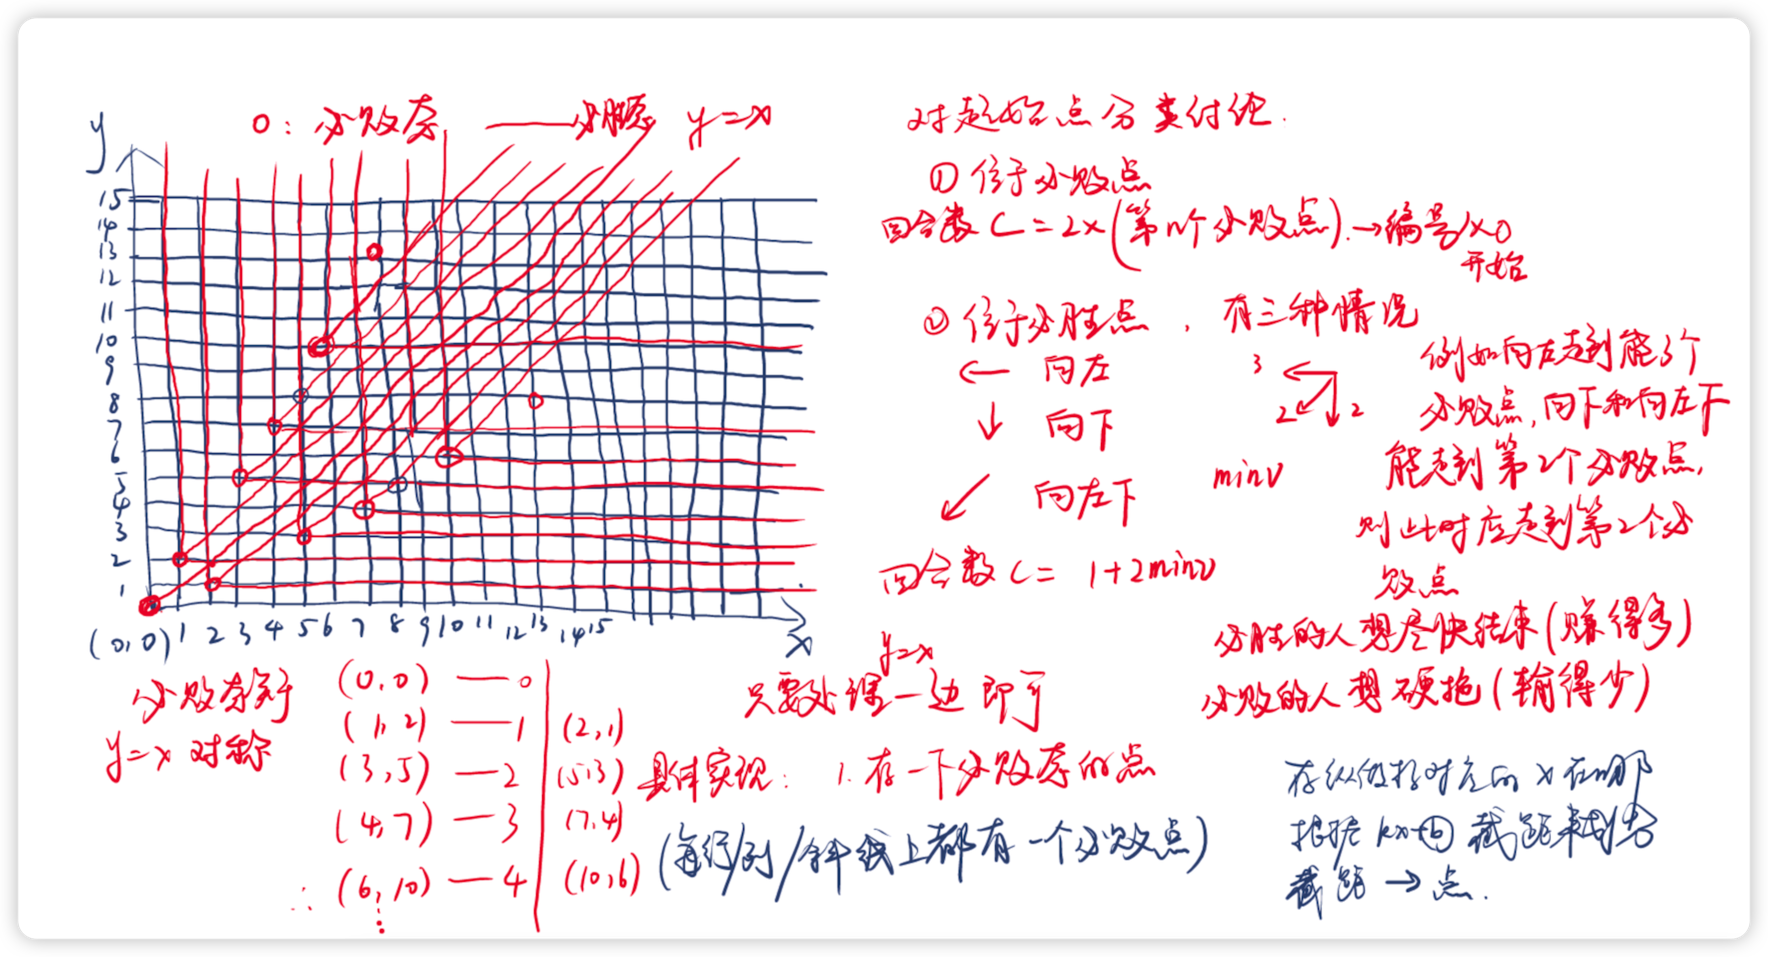 y
O：必败态 ——必胜态 y=x
15
14
13
12
11
10
9
8
7
6
5
4
3
2
1
(0,0) 1 2 3 4 5 6 7 8 9 10 11 12 13 14 15
x
必败态关于
y=x 对称
(0,0) — 0
(1,2) — 1 (2,1)
(3,5) — 2 (5,3)
(4,7) — 3 (7,4)
(6,10) — 4 (10,6)
对起始点分类讨论.
① 位于必败点
回合数 C = 2×(第n个必败点).→编号从0
开始
② 位于必胜点，有三种情况
← 向左
↓ 向下
↙ 向左下
3
2
2
minv
例如向左走到能3个
必败点,向下和向左下
能走到第2个必败点,
则此时应走到第2个必
败点
回合数 C = 1+2minv
必胜的人想尽快结束(赚得多)
必败的人想硬拖(输得少)
y=x
只要处理一边即可
具体实现： 1.存一下必败态的点
(每行/列/斜线上都有一个必败点)
存纵坐标对应的x在哪
根据kx+b 截距来划分
截距→点.